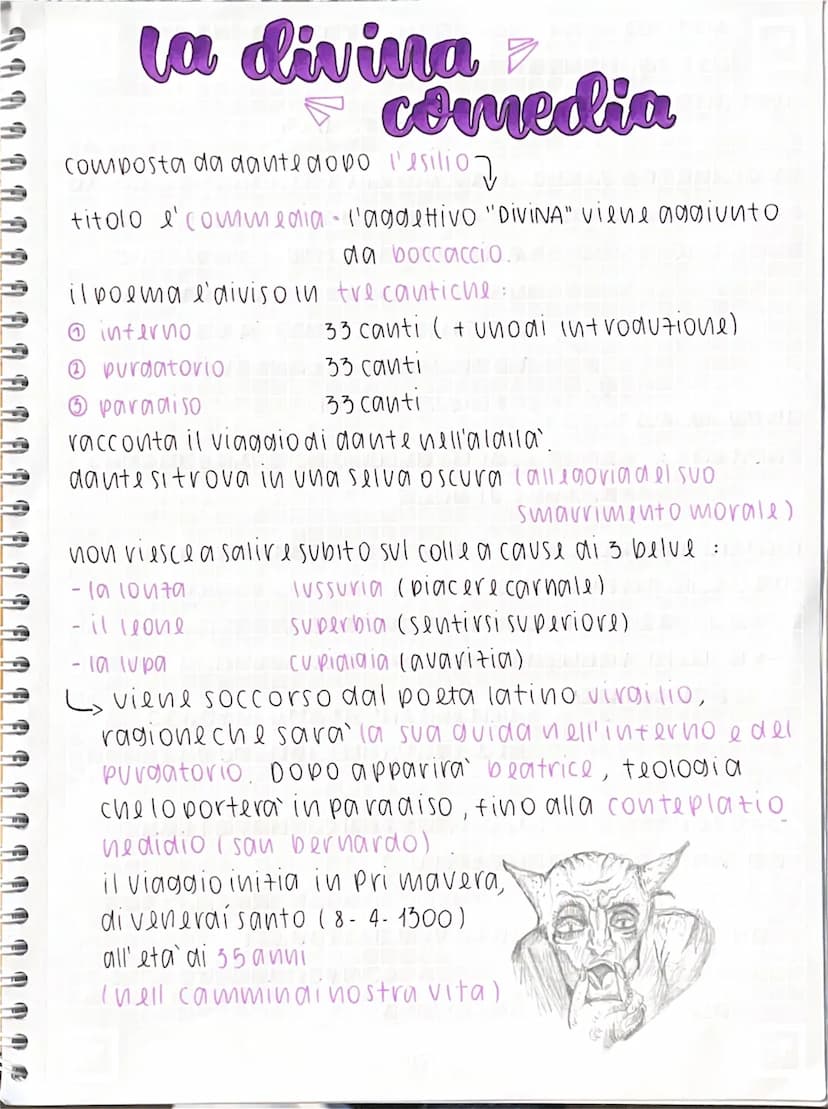 la divina
comedia
composta da dante dopo l'esilio
titolo e' commedia - l'aggettivo "DIVINA" viene aggiunto
da boccaccio.
il poema e' diviso in tre cantiche:
① inferno 33 canti ( + uno di introduzione)
② purgatorio 33 canti
③ paradiso 33 canti
racconta il viaggio di dante nell'aldila'
dante si trova in una selva oscura (allegoria del suo
smarrimento morale)
non riesce a salire subito sul colle a cause di 3 belve:
- la lonza lussuria (piacere carnale)
- il leone superbia (sentirsi superiore)
- la lupa cupidigia (avarizia)
viene soccorso dal poeta latino virgilio,
ragione che sara' la sua guida nell'inferno e del
purgatorio. Dopo apparira' beatrice, teologia
che lo portera' in paradiso, fino alla conteplatio
ne di dio (san bernardo)
il viaggio inizia in primavera,
di venerdi santo (8-4-1300)
all'eta' di 35 anni
(nell cammin di nostra vita)